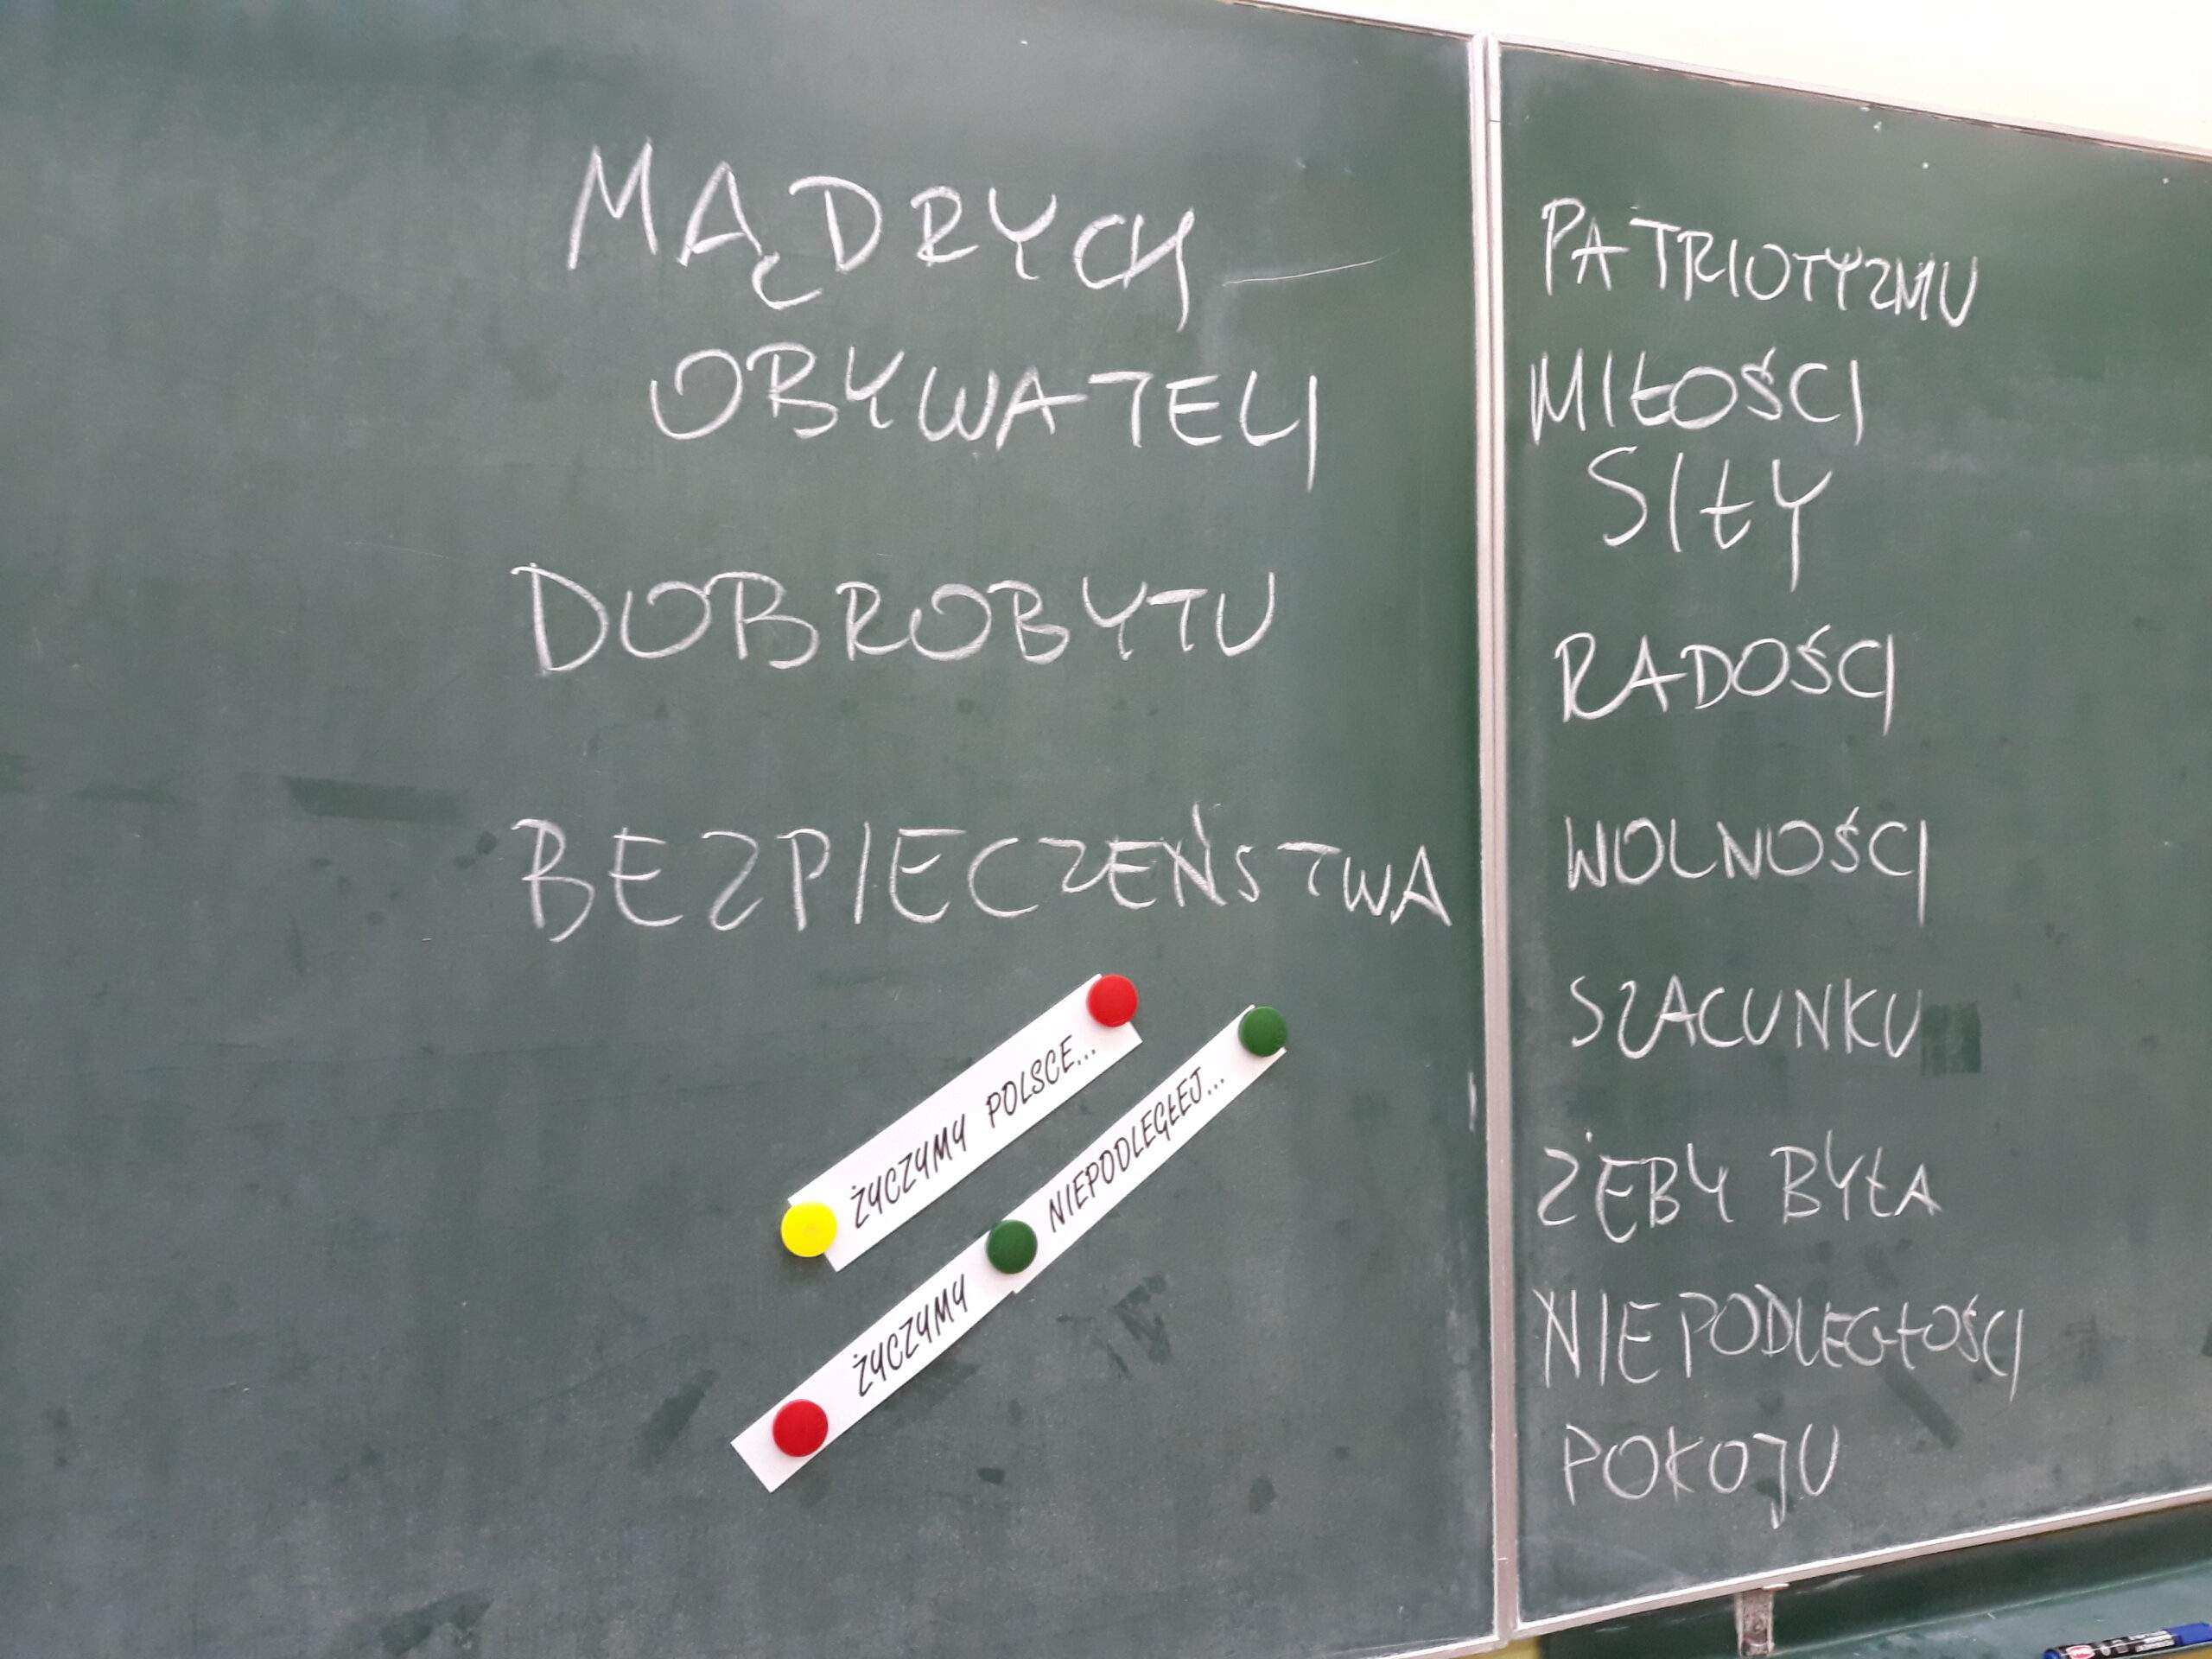 MĄDRYCH
OBYWATELI
DOBROBYTU
BEZPIECZEŃSTWA
ŻYCZYMY POLSCE...
ŻYCZYMY NIEPODLEGŁEJ...
PATRIOTYZMU
MIŁOŚCI
SIŁY
RADOŚCI
WOLNOŚCI
SZACUNKU
ŻEBY BYŁA
NIEPODLEGŁOŚCI
POKOJU